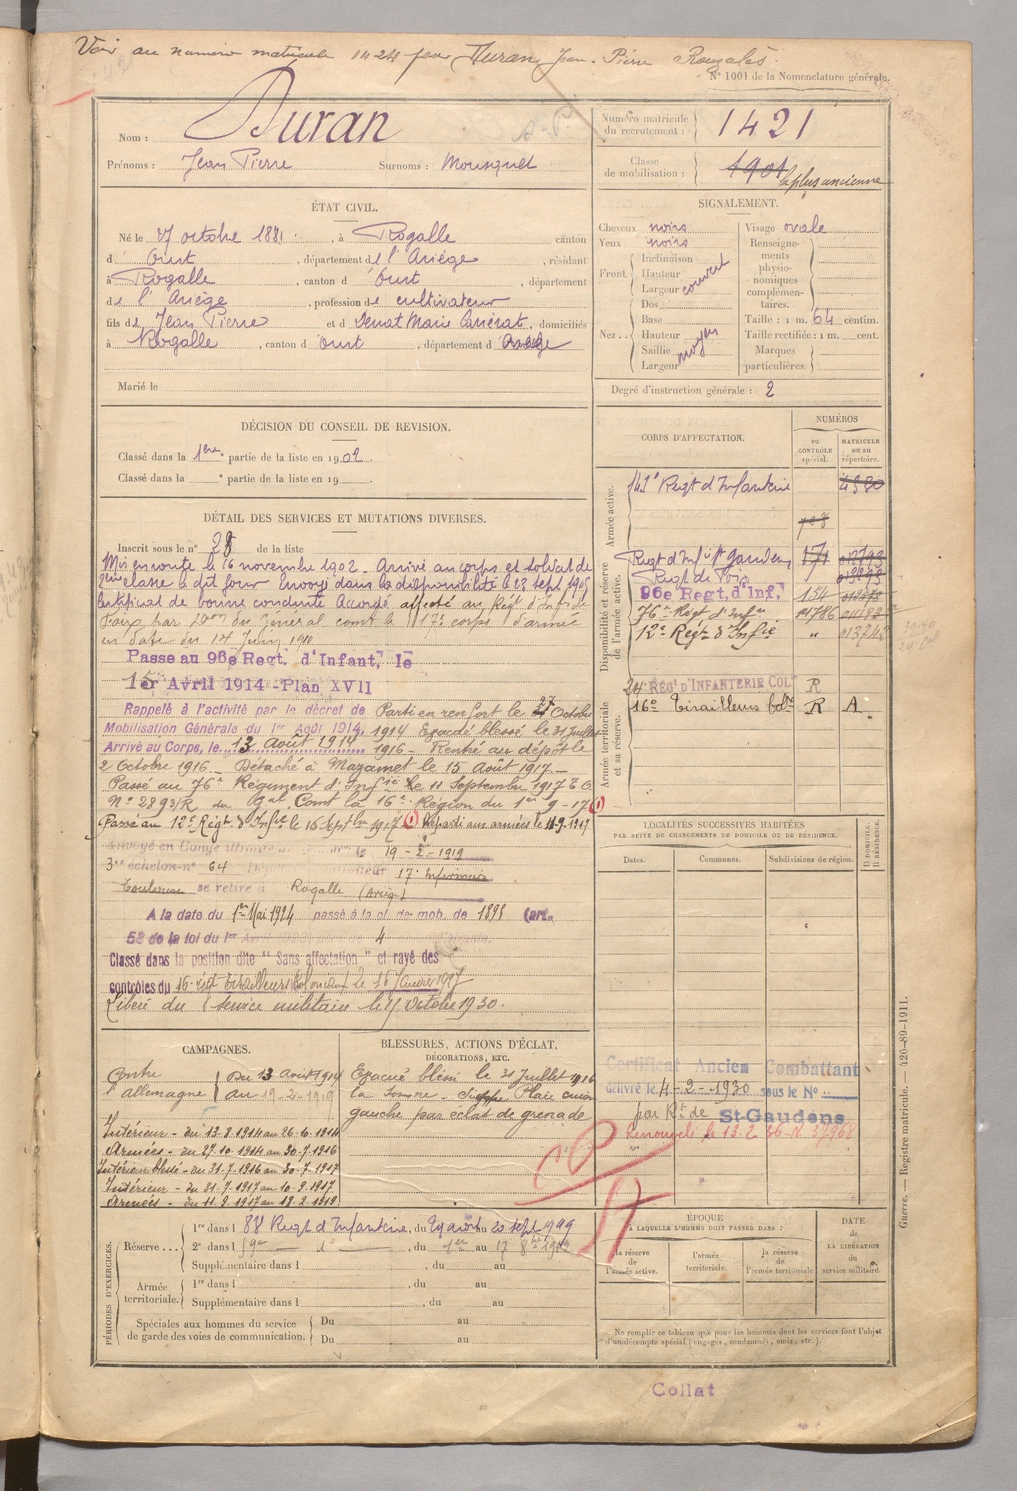 Voir au numéro matricule 1424 pour Duran Jean-Pierre Rougalès.
N° 1001 de la Nomenclature générale.
Nom : Duran
Prénoms : Jean Pierre Surnoms : Mousquet
Numéro matricule du recrutement : 1421
Classe de mobilisation : 1901 la plus ancienne
ÉTAT CIVIL.
Né le 27 octobre 1881, à Rogalle canton
d' Oust, département de l'Ariège, résidant
à Rogalle, canton d' Oust, département
de l'Ariège, profession de cultivateur
fils de Jean Pierre et de Marie, domiciliés
à Rogalle, canton d' Oust, département d' Ariège
Marié le
SIGNALEMENT.
Cheveux noirs
Yeux noirs
Front. Inclinaison Hauteur Largeur couvert
Nez.. Dos Base Hauteur Saillie Largeur moyen
Visage ovale
Renseignements physionomiques complémentaires.
Taille : 1 m. 64 centim.
Taille rectifiée : 1 m. cent.
Marques particulières.
Degré d'instruction générale : 2
DÉCISION DU CONSEIL DE REVISION.
Classé dans la 1ère partie de la liste en 1902.
Classé dans la ° partie de la liste en 19
CORPS D'AFFECTATION.
NUMÉROS
AU CONTRÔLE spécial.
MATRICULE OU AU répertoire.
Armée active.
142e Régt d'Infanterie
Disponibilité et réserve de l'armée active.
Régt d'Inf. St Gaudens 171
Régt de Foix
96e Regt. d'Inf. 154
76e Régt d'Infie
12e Régt d'Infie "
Armée territoriale et sa réserve.
24e RÉGt D'INFANTERIE COLe R
16e Tirailleurs R A
DÉTAIL DES SERVICES ET MUTATIONS DIVERSES.
Inscrit sous le n° 28 de la liste
Mis en route le 16 novembre 1902. Arrivé au corps et soldat de
2ème classe à dit jour. Envoyé dans la disponibilité le 23 sept. 1905
Certificat de bonne conduite Accordé affecté au Régt d'Inf de
Foix par du Général comt le 17e corps d'armée
en date du 14 Juin 1910
Passe au 96e Regt. d'Infant. le
1er Avril 1914 - Plan XVII
Rappelé à l'activité par le décret de Parti en renfort le 27 Octobre
Mobilisation Générale du 1er Août 1914. 1914 Evacué blessé le 31 Juillet
Arrivé au Corps, le 13 Août 1914 1916 - Rentré au dépôt le
2 Octobre 1916 - Détaché à Mazamet le 15 Août 1917.
Passé au 76e Régiment d'Infie le 11 Septembre 1917
N° 2893/R du Gal Comt la 16e Région du 1er 9-17 (1)
Passé au 12e Régt d'Infie le 16 1917 (1) Reparti aux armées le 11-9-1917
Envoyé en Congé illimité le 19-2-1919
3e échelon n° 64 17e
Toulouse se retire à Rogalle (Ariège)
A la date du 1er Mai 1924 passé à la cl. de mob. de 1895 (art.
58 de la loi du 1er Avril 1923) 4
Classé dans la position dite "Sans affectation" et rayé des
contrôles du 16e régt tirailleurs le 16 Janvier 1927
Libéré du service militaire le octobre 1930.
LOCALITÉS SUCCESSIVES HABITÉES
PAR SUITE DE CHANGEMENTS DE DOMICILE OU DE RÉSIDENCE.
Dates. Communes. Subdivisions de région. D DOMICILE. R RÉSIDENCE.
Certificat Ancien Combattant
délivré le 4-2-1930 sous le N°
par Rt de St-Gaudens
Renouvelé le 13.2.36 - N° 37968
CAMPAGNES.
Contre l'allemagne Du 13 Août 1914 au 19-2-1919
Intérieur - du 13.8.1914 au 26.10.1914
Armées - du 27.10.1914 au 30.7.1916
Intérieur blessé - du 31.7.1916 au 30.7.1917
Intérieur - du 31.7.1917 au 10.9.1917
Armées - du 11.9.1917 au 18.2.1919.
BLESSURES, ACTIONS D'ÉCLAT,
DÉCORATIONS, ETC.
Evacué blessé le 31 Juillet 1916
la Somme - Plaie cuisse
gauche par éclat de grenade
PÉRIODES D'EXERCICES.
Réserve...
1re dans le 88e Régt d'Infanterie, du au 20 sept. 1909
2e dans le 59e, du 1er au 17
Supplémentaire dans l , du au
Armée territoriale.
1re dans l , du au
Supplémentaire dans l , du au
Spéciales aux hommes du service de garde des voies de communication.
Du au
Du au
ÉPOQUE
À LAQUELLE L'HOMME DOIT PASSER DANS :
la réserve de l'armée active.
l'armée territoriale.
la réserve de l'armée territoriale
DATE de LA LIBÉRATION du service militaire.
Ne remplir ce tableau que pour les hommes dont les services font l'objet d'un décompte spécial (engagés, condamnés, omis, etc.).
Guerre. — Registre matricule. — 426-89-1911.
Collat